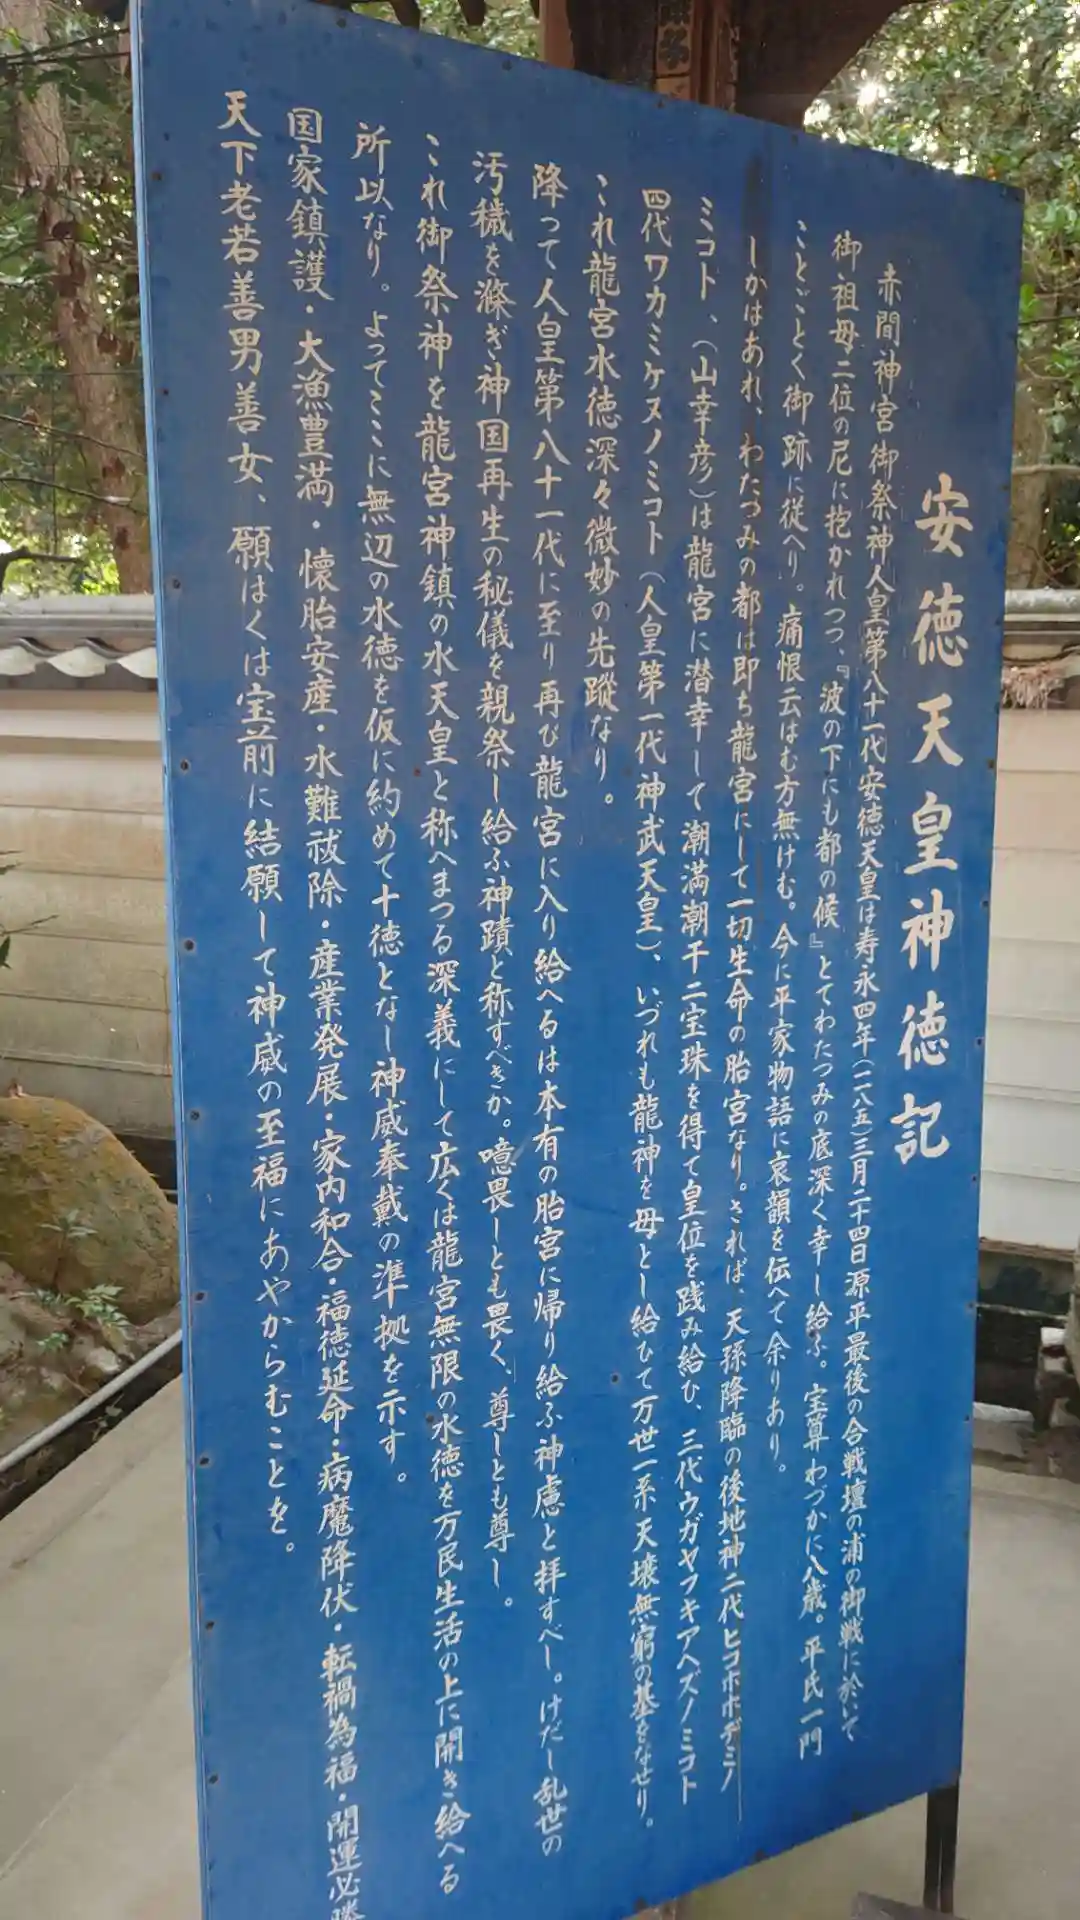 安徳天皇神徳記
赤間神宮御祭神人皇第八十一代安徳天皇は寿永四年(一一八五)三月二十四日源平最後の合戦壇の浦の御戦に於いて
御祖母二位の尼に抱かれつつ、『波の下にも都の候』とてわたつみの底深く幸し給ふ。宝算わづかに八歳。平氏一門
ことごとく御跡に従へり。痛恨云はむ方無けむ。今に平家物語に哀韻を伝へて余りあり。
しかはあれ、わたつみの都は即ち龍宮にして一切生命の胎宮なり。されば、天孫降臨の後地神二代ヒコホホデミノ
ミコト、(山幸彦)は龍宮に潜幸して潮満潮干二宝珠を得て皇位を践み給ひ、三代ウガヤフキアヘズノミコト
四代ワカミケヌノミコト(人皇第一代神武天皇)、いづれも龍神を母とし給ひて万世一系天壌無窮の基をなせり。
これ龍宮水徳深々微妙の先蹤なり。
降って人皇第八十一代に至り再び龍宮に入り給へるは本有の胎宮に帰り給ふ神慮と拝すべし。けだし乱世の
汚穢を滌ぎ神国再生の秘儀を親祭し給ふ神蹟と称すべきか。噫畏しとも畏く、尊しとも尊し。
これ御祭神を龍宮神鎮の水天皇と称へまつる深義にして広くは龍宮無限の水徳を万民生活の上に開き給へる
所以なり。よってここに無辺の水徳を仮に約めて十徳となし神威奉戴の準拠を示す。
国家鎮護・大漁豊満・懐胎安産・水難祓除・産業発展・家内和合・福徳延命・病魔降伏・転禍為福・開運必勝
天下老若善男善女、願はくは宝前に結願して神威の至福にあやからむことを。